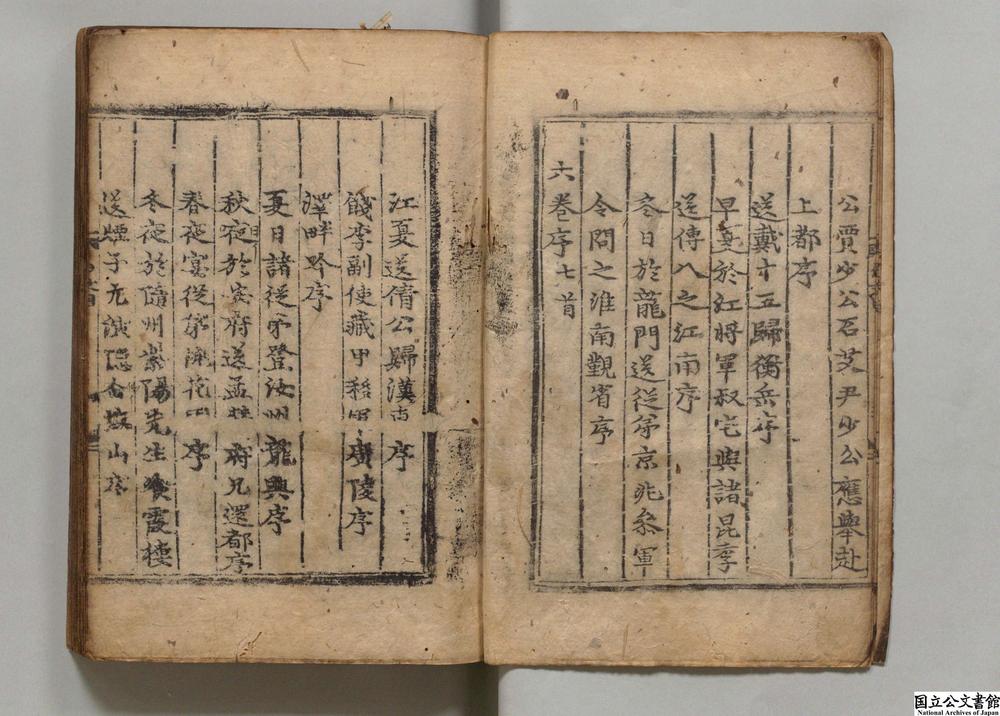 公賈少公石艾尹少公應舉赴
上都序
送戴十五歸衡岳序
早夏於江將軍叔宅與諸昆季
送傅八之江南序
冬日於龍門送從弟京兆參軍
令問之淮南覲省序
六卷序七首
江夏送倩公歸漢東序
餞李副使藏甲移軍廣陵序
澤畔吟序
夏日諸從弟登汝州龍興序
秋夜於安府送孟 府兄還都序
春夜宴從弟 花 序
冬夜於隨州紫陽先生飡霞樓
送煙子元 隱 山序
国立公文書館
National Archives of Japan